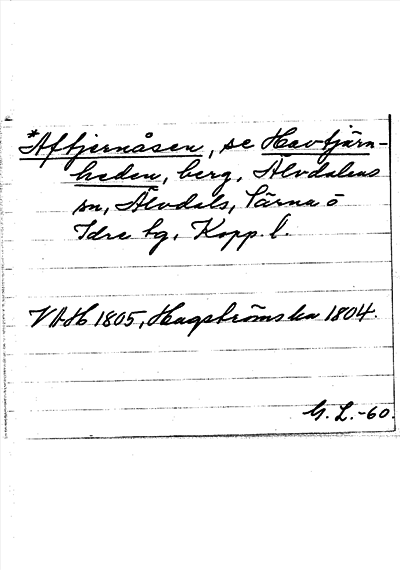 *Aftjernåsen, se Havtjärn-
heden, berg, Älvdalens
sn, Älvdals, Särna o
Idre tg, Kopp. l.
VAH 1805, Hagströmska 1804.
G. L.-60.